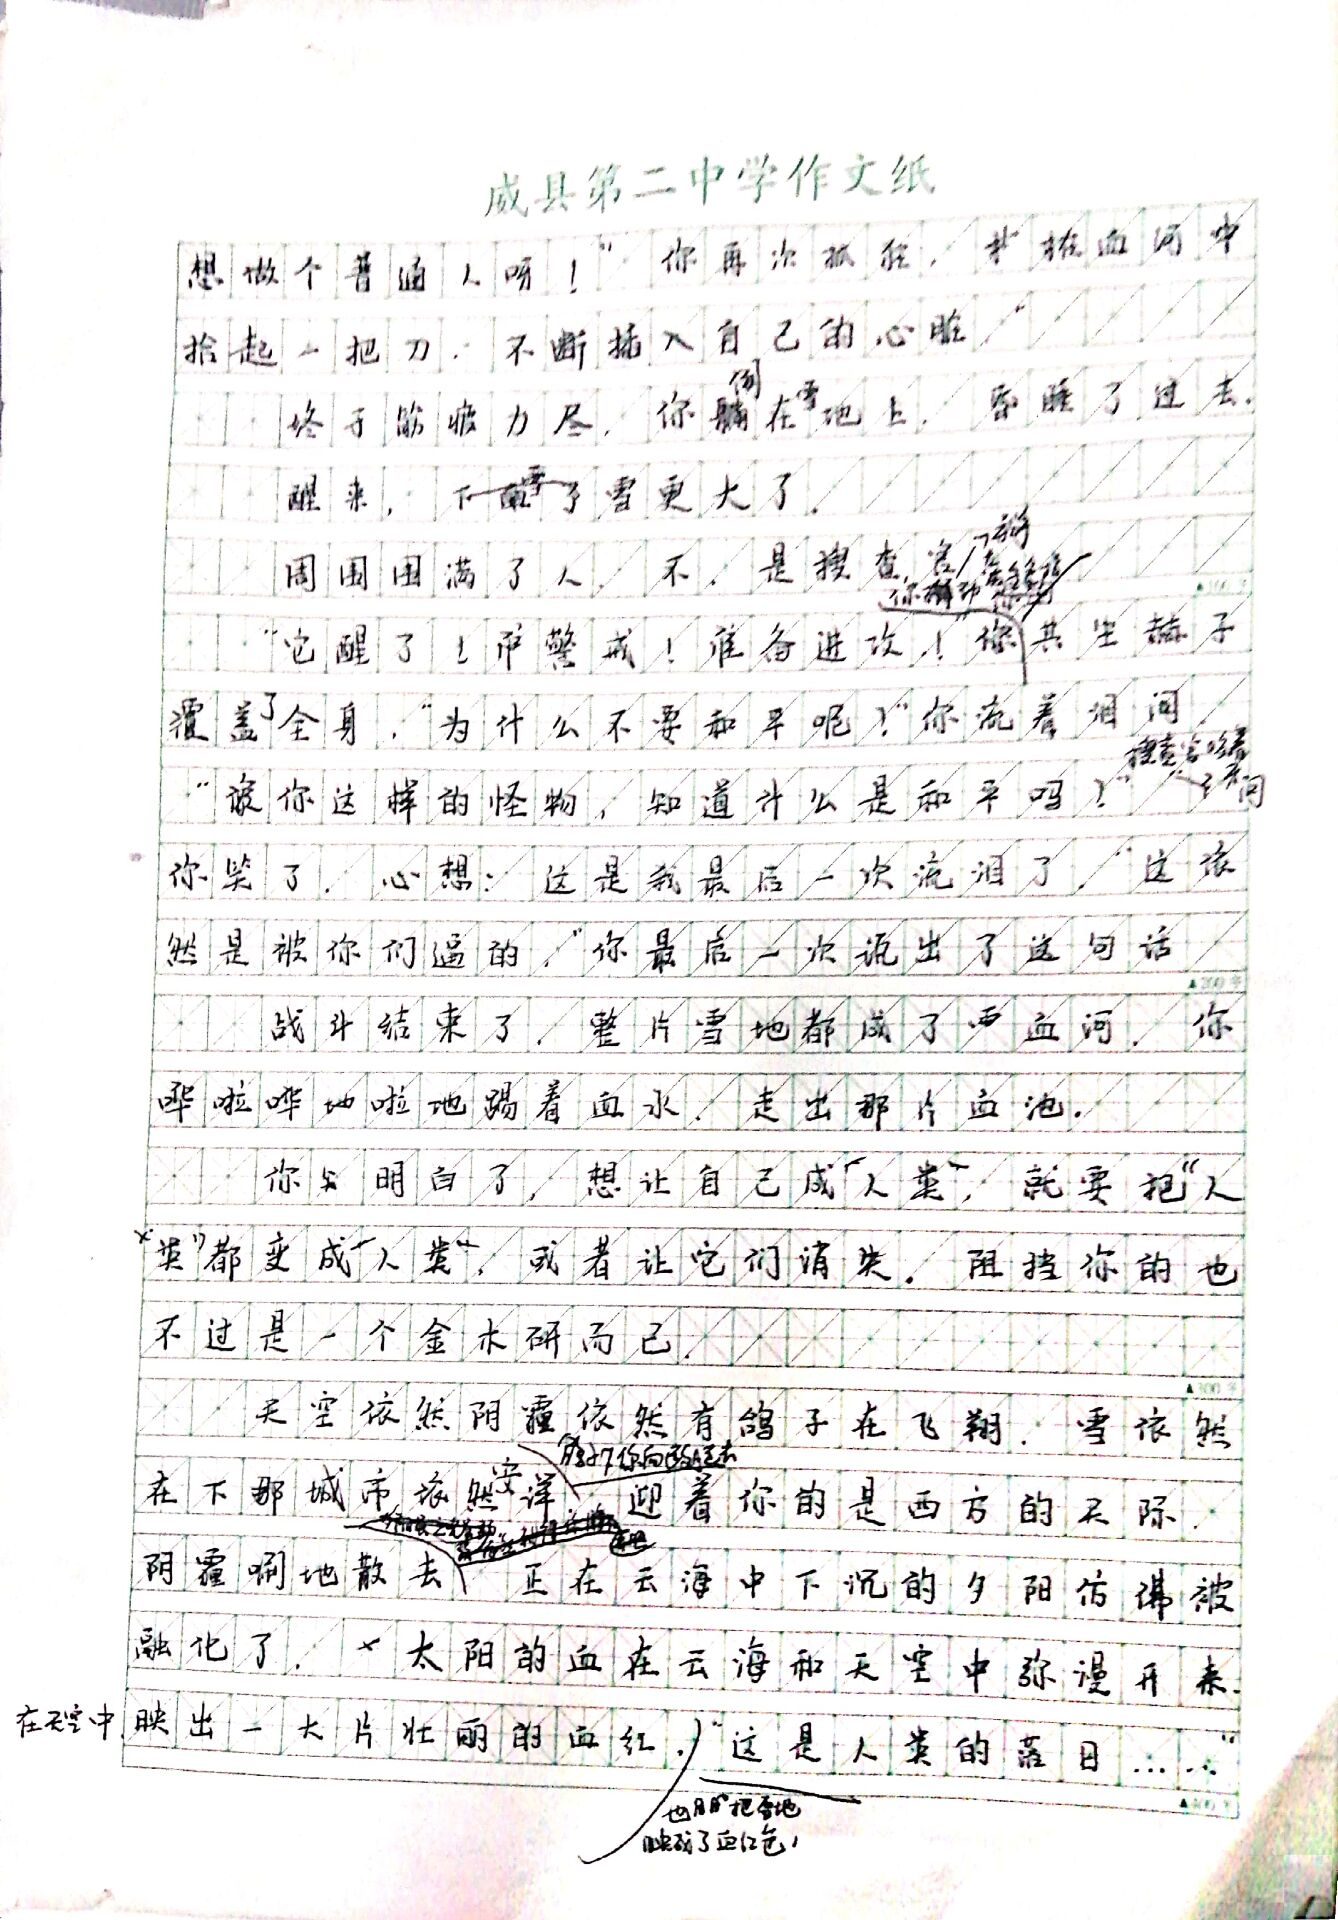 威县第二中学作文纸
想做个普通人呀！”你再次抓狂，并在血河中
拾起一把刀，不断插入自己的心脏，
终于筋疲力尽，你倒在雪地上，昏睡了过去.
醒来，雪更大了.
周围围满了人，不，是搜查官，
“它醒了！戒警戒！准备进攻！”你 共生赫子
覆盖了全身，“为什么不要和平呢！”你流着泪问
“像你这样的怪物，知道什么是和平吗！” 搜查官 问
你哭了，心想：这是我最后一次流泪了，“这依
然是被你们逼的.”你最后一次说出了这句话
战斗结束了.整片雪地都成了血河.你
哗啦哗地啦地踢着血水.走出那片血池.
你 明白了，想让自己成“人类”，就要把“人
类”都变成“人类”，或者让它们消失.阻挡你的也
不过是一个金木研而已.
天空依然阴霾依然有鸽子在飞翔.雪依然
在下那城市依然安详. 迎着你的是西方的天际.
阴霾唰地散去 正在云海中下沉的夕阳仿佛被
融化了. 太阳的血在云海和天空中弥漫开来.
在天空中映出一大片壮丽的血红.“这是人类的落日……”
也 把雪地
映成了血红色，
▲200字
▲300字
▲400字